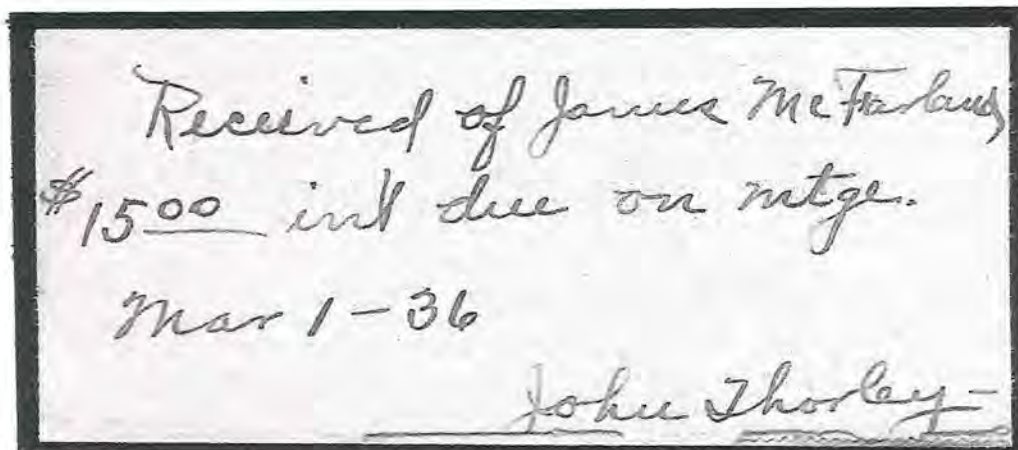 Received of James McFarland
$15.00 int due on mtge.
Mar 1-36
John Thorley